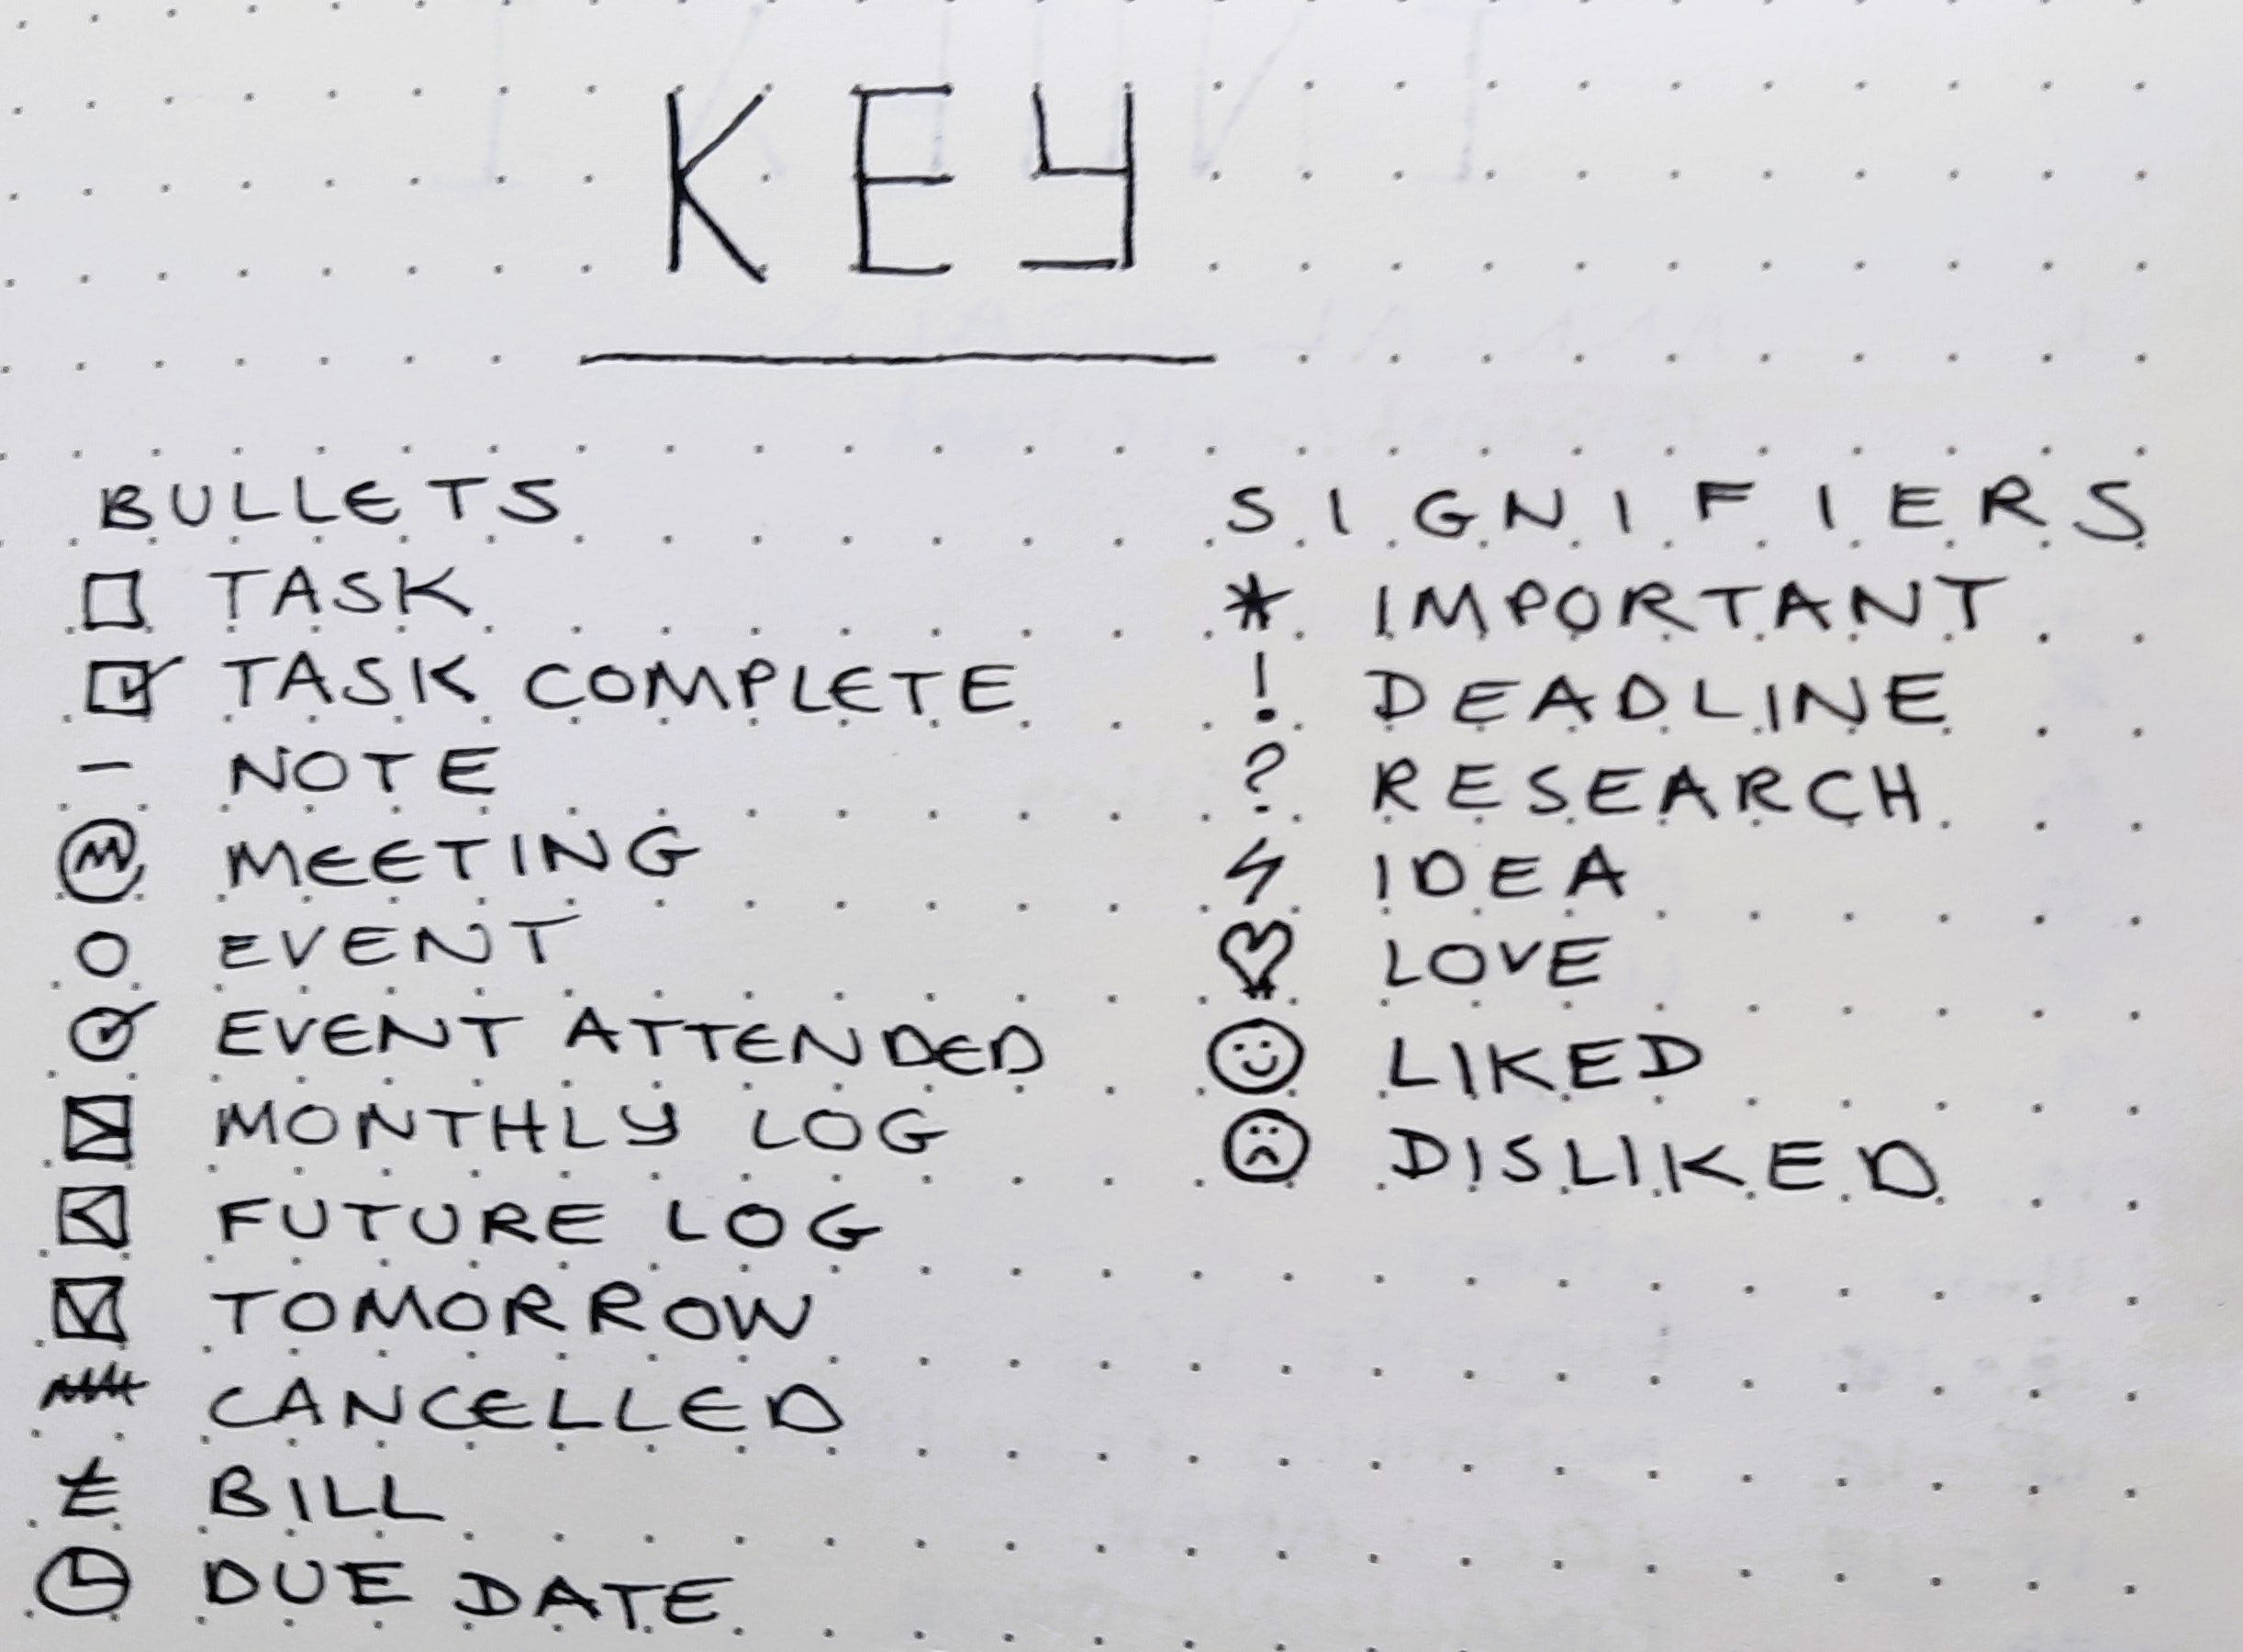 KEY
BULLETS
□ TASK
☑ TASK COMPLETE
– NOTE
Ⓜ MEETING
○ EVENT
EVENT ATTENDED
MONTHLY LOG
FUTURE LOG
TOMORROW
CANCELLED
BILL
DUE DATE
SIGNIFIERS
* IMPORTANT
! DEADLINE
? RESEARCH
IDEA
♡ LOVE
☺ LIKED
☹ DISLIKED